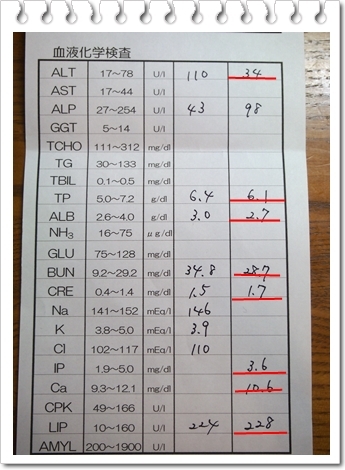 血液化学検査
ALT 17~78 U/l 110 34
AST 17~44 U/l
ALP 27~254 U/l 43 98
GGT 5~14 U/l
TCHO 111~312 mg/dl
TG 30~133 mg/dl
TBIL 0.1~0.5 mg/dl
TP 5.0~7.2 g/dl 6.4 6.1
ALB 2.6~4.0 g/dl 3.0 2.7
NH3 16~75 μg/dl
GLU 75~128 mg/dl
BUN 9.2~29.2 mg/dl 34.8 28.7
CRE 0.4~1.4 mg/dl 1.5 1.7
Na 141~152 mEq/l 146
K 3.8~5.0 mEq/l 3.9
Cl 102~117 mEq/l 110
IP 1.9~5.0 mg/dl 3.6
Ca 9.3~12.1 mg/dl 10.6
CPK 49~166 U/l
LIP 10~160 U/l 224 228
AMYL 200~1900 U/l